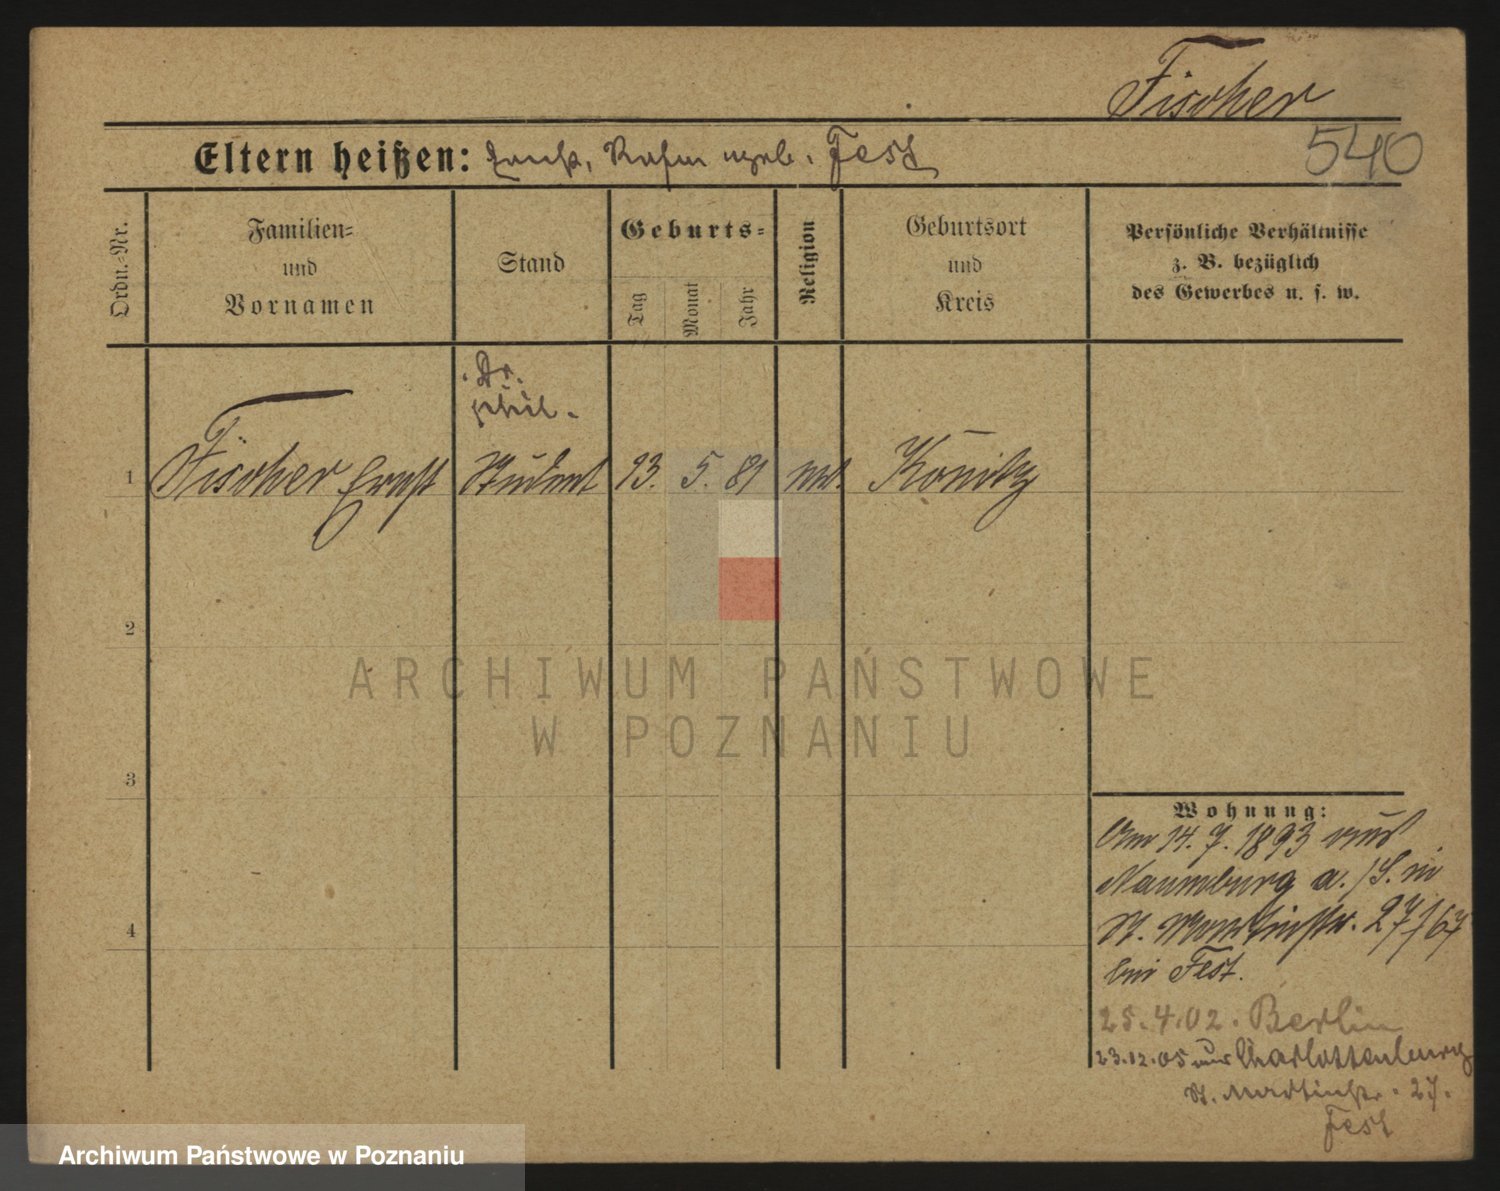 Fischer
540
Eltern heißen: Ernst, Rosa geb. Fest
Ordn.-Nr.
Familien-
und
Vornamen
Stand
Geburts-
Tag
Monat
Jahr
Religion
Geburtsort
und
Kreis
Persönliche Verhältnisse
z. B. bezüglich
des Gewerbes u. s. w.
Dr.
phil.
1 Fischer Ernst Student 13. 5. 81 Konitz
2
3
4
Wohnung:
Am 14. 7. 1893 aus
Naumburg a./S. in
St. Martinstr. 27/67
bei Fest.
25.4.02. Berlin
23.12.05 aus Charlottenburg
St. Martinstr. 27.
Fest
ARCHIWUM PAŃSTWOWE
W POZNANIU
Archiwum Państwowe w Poznaniu